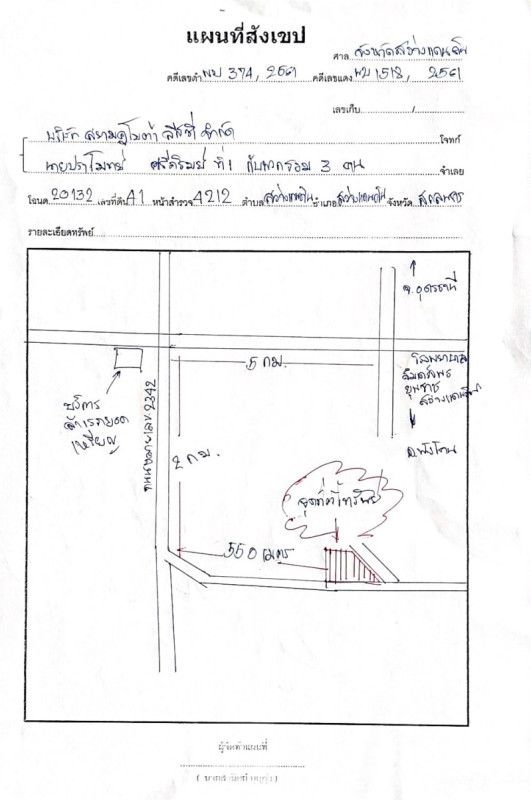 แผนที่สังเขป
ศาล จังหวัดสว่างแดนดิน
คดีเลขดำ ผบ 374, 2561 คดีเลขแดง ผบ 1518, 2561
เลขเก็บ /
บริษัท สยามคูโบต้า ลีสซิ่ง จำกัด โจทก์
นายปราโมทย์ ที่ 1 กับพวกรวม 3 คน จำเลย
โฉนด 20132 เลขที่ดิน 41 หน้าสำรวจ 4212 ตำบล สว่างแดนดิน อำเภอ สว่างแดนดิน จังหวัด สกลนคร
รายละเอียดทรัพย์
จ.อุดรธานี
5 กม.
โรงพยาบาล
สมเด็จพระ
ยุพราช
สว่างแดนดิน
บริการ
หยอด
เหรียญ
ถนนหมายเลข 2342
2 กม.
อ.พังโคน
จุดที่ตั้งทรัพย์
550 เมตร
ผู้จัดทำแผนที่